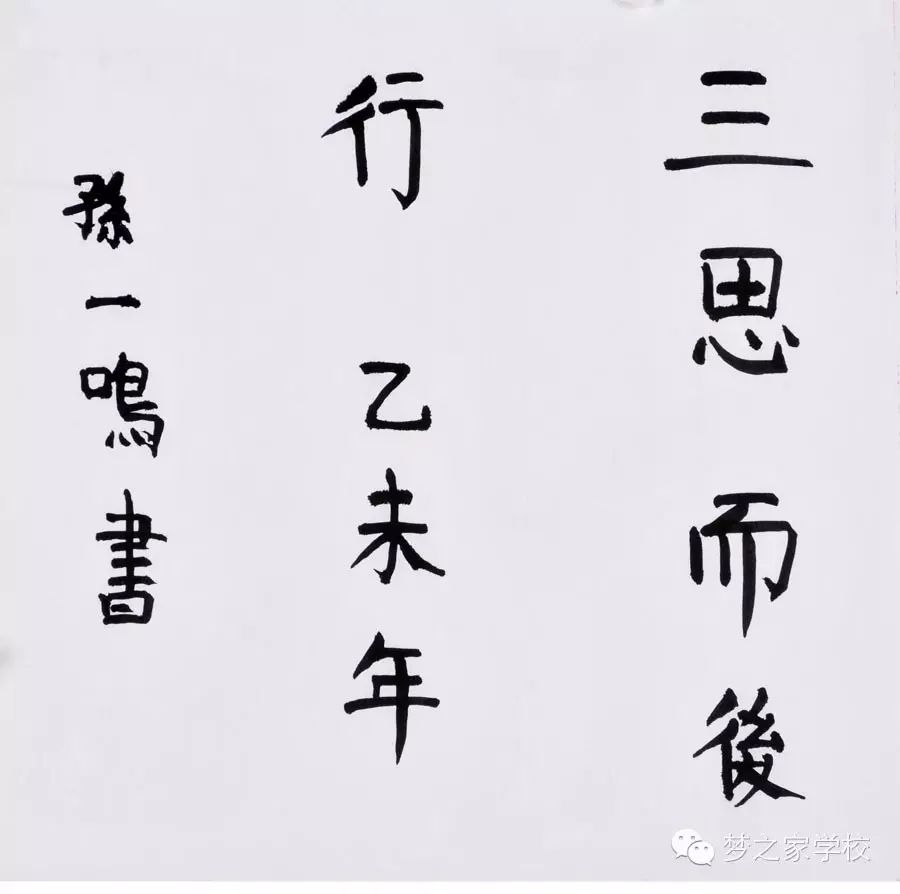 三思而後
行 乙未年
孫一鳴書
梦之家学校